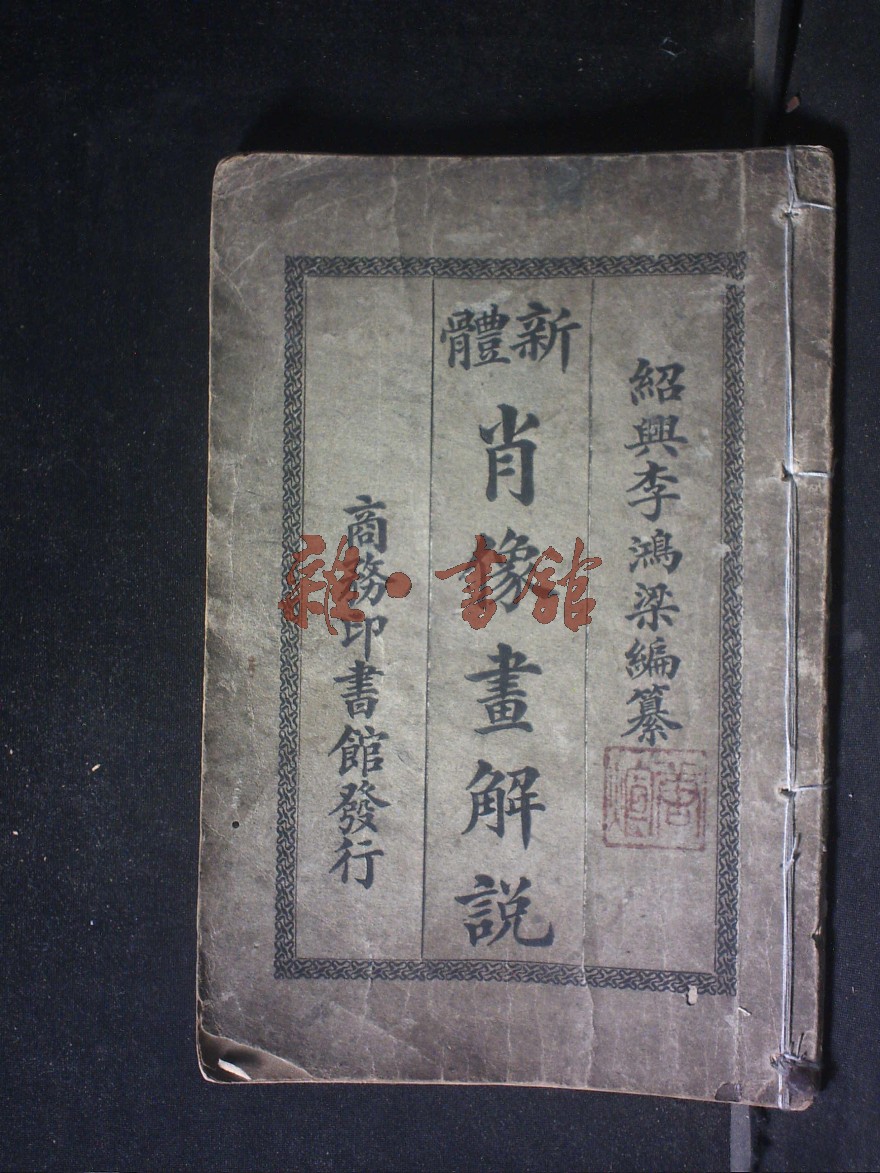 紹興李鴻梁編纂
新體
肖像畫解説
商務印書館發行
雜·書館